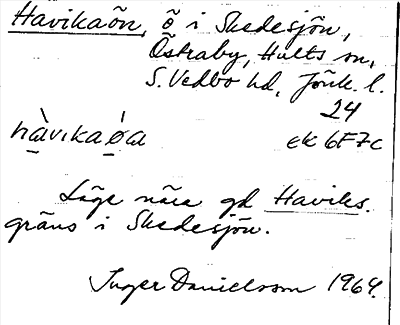 Havikaön, ö i Skedesjön,
Östraby, Hults sn,
S. Vedbo hd, Jönk. l.
24
hàvikaø̀a ek 6F7c
Läge nära gd Haviks.
gräns i Skedesjön.
Inger Danielsson 1964.